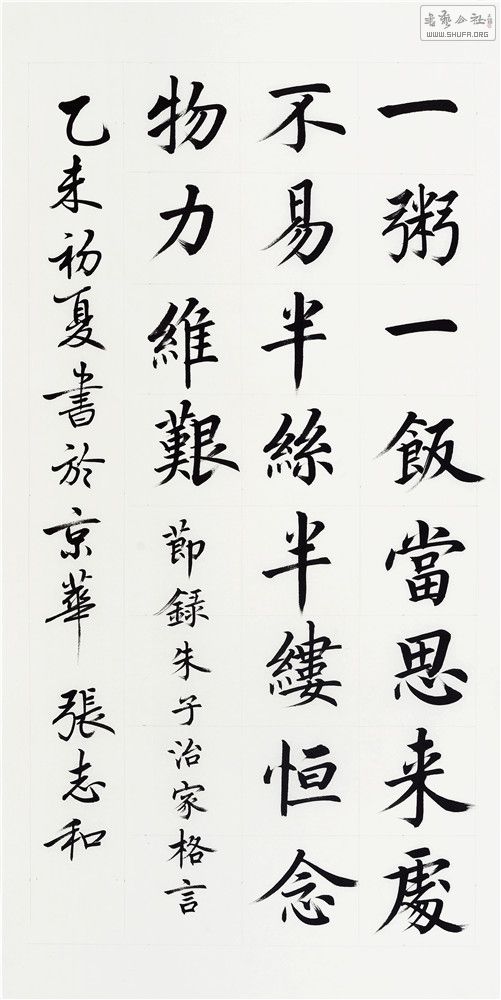 一粥一飯當思来處
不易半絲半縷恒念
物力維艱
節録朱子治家格言
乙未初夏書於京華 張志和
書藝公社
WWW.SHUFA.ORG